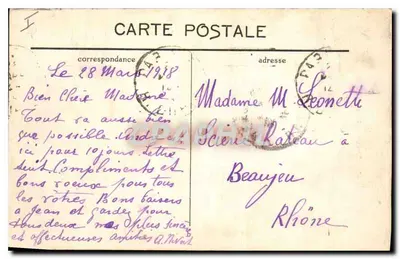 I
CARTE POSTALE
correspondance
adresse
Le 28 Mars 1918
Bien Chère Madame
Tout va aussi bien
que possible
ici pour 10 jours lettre
suit Compliments et
bons voeux pour tous
les vôtres Bons baisers
a Jean et gardez pour
tous deux mes plus sincères
et affectueuses amitiés
Madame M. Leonetti
Scierie Rateau a
Beaujeu
Rhône